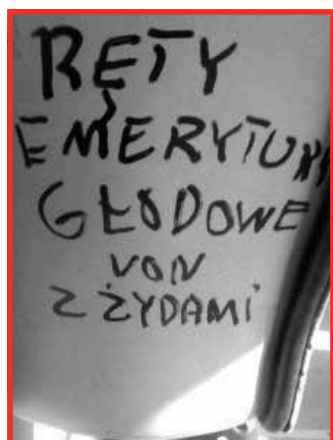 RĘTY
EMERYTURY
GŁODOWE
VON
Z ŻYDAMI